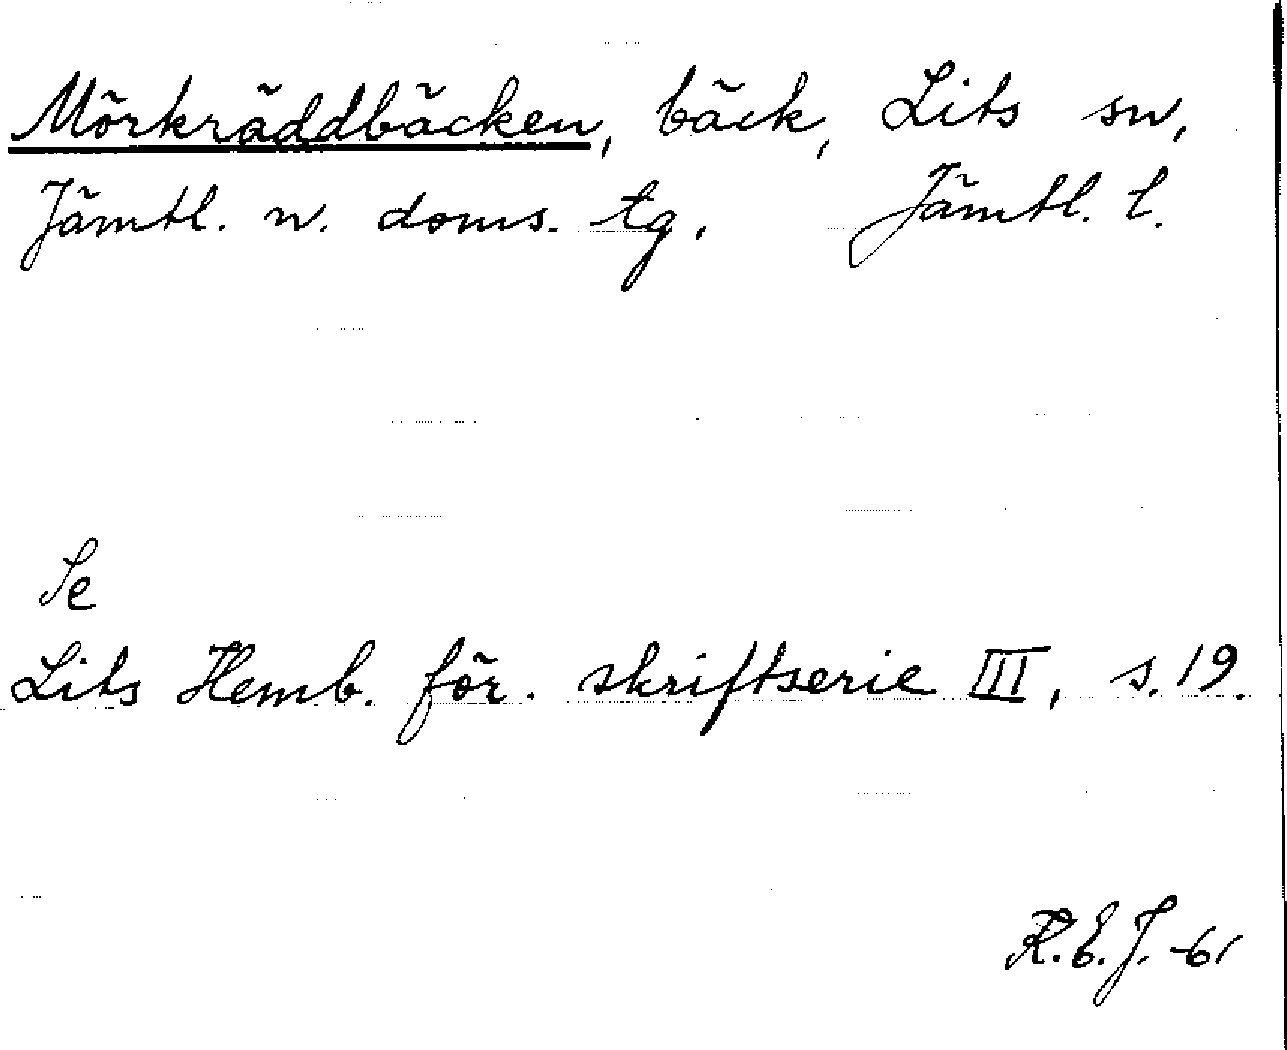 Mörkräddbäcken, bäck, Lits sn,
Jämtl. n. doms. tg. Jämtl. l.
Se
Lits Hemb. för. skriftserie III, s. 19.
R.E.J. -61